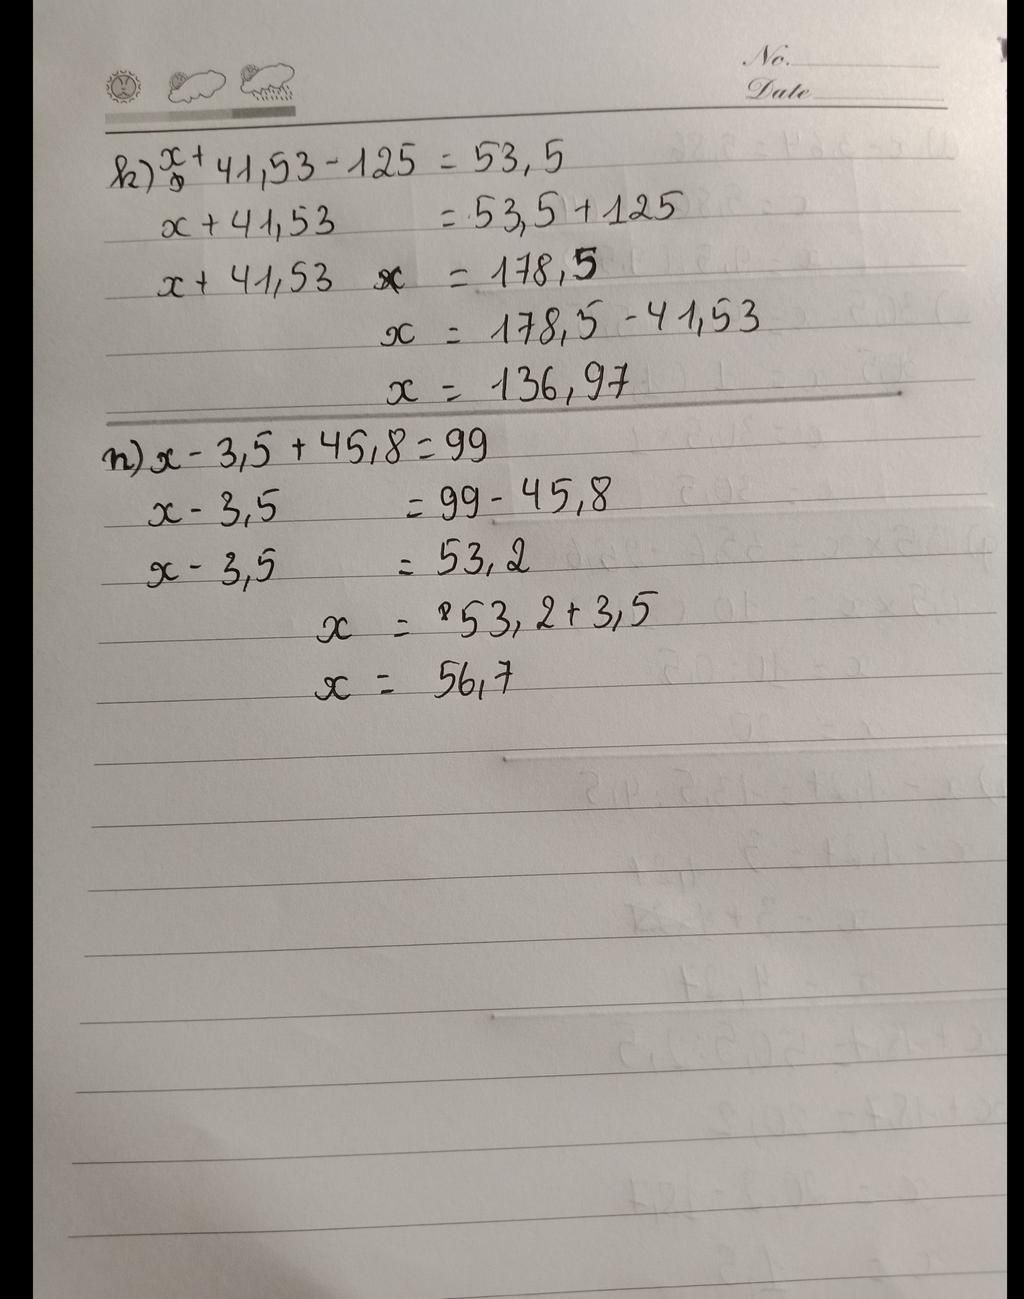 No.
Date
k) x + 41,53 - 125 = 53,5
x + 41,53 = 53,5 + 125
x + 41,53 = 178,5
x = 178,5 - 41,53
x = 136,97
n) x - 3,5 + 45,8 = 99
x - 3,5 = 99 - 45,8
x - 3,5 = 53,2
x = 53,2 + 3,5
x = 56,7